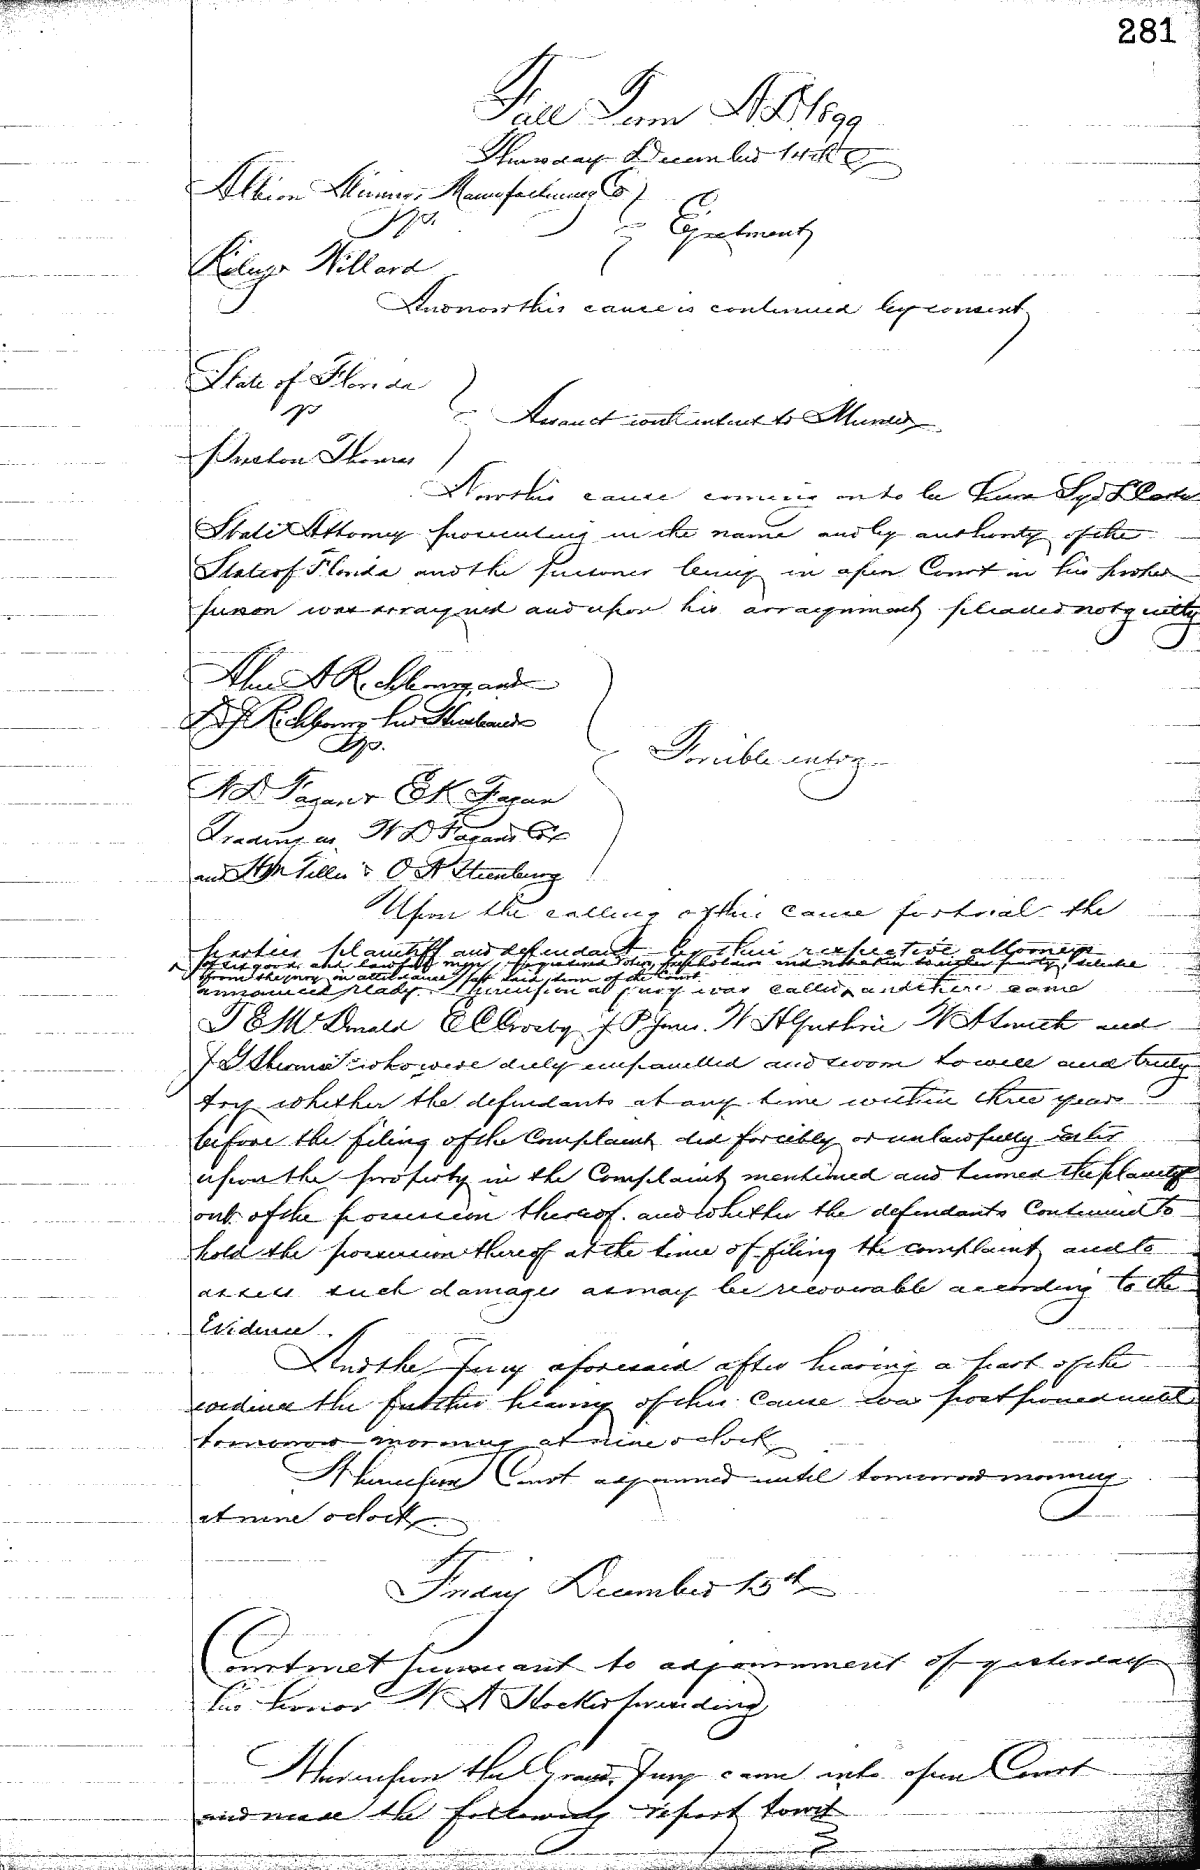 281
Fall Term A.D. 1899
Thursday December 14th
Albion Mining & Manufacturing Co
vs.
Ejectment
Willard
And now this cause is continued by consent
State of Florida
vs
Assault with intent to Murder
Preston Thomas
Now this cause coming on to be heard Syd L Carter
State Attorney prosecuting in the name and by authority of the
State of Florida and the prisoner being in open Court in his proper
person was arraigned and upon his arraignment pleaded not guilty
A Richbourg and
Richbourg her Husband
vs.
Forcible entry
N D Fagan & E K Fagan
Trading as N D Fagan & Co
and Wm Tillis & O A Steenburg
Upon the calling of this cause for trial the
parties plaintiff and defendant by their respective attorneys
of six good and lawful men
from the jury in attendance at said term of the Court
announced ready. Whereupon a jury was called and there came
T E McDonald E C Crosby J P Jones. W H Guthrie W A Smith and
J G Thomas who were duly empanelled and sworn to well and truly
try whether the defendants at any time within three years
before the filing of the Complaint did forcibly or unlawfully enter
upon the property in the Complaint mentioned and turned the plaintiff
out of the possession thereof. and whether the defendants Continued to
hold the possession thereof at the time of filing the complaint and to
assess such damages as may be recoverable according to the
Evidence.
And the Jury aforesaid after hearing a part of the
evidence the further hearing of this cause was postponed until
tomorrow morning at nine oclock
Whereupon Court adjourned until tomorrow morning
at nine oclock.
Friday December 15th
Court met pursuant to adjournment of yesterday
his honor W A Hocker presiding
Whereupon the Grand Jury came into open Court
and made the following report towit